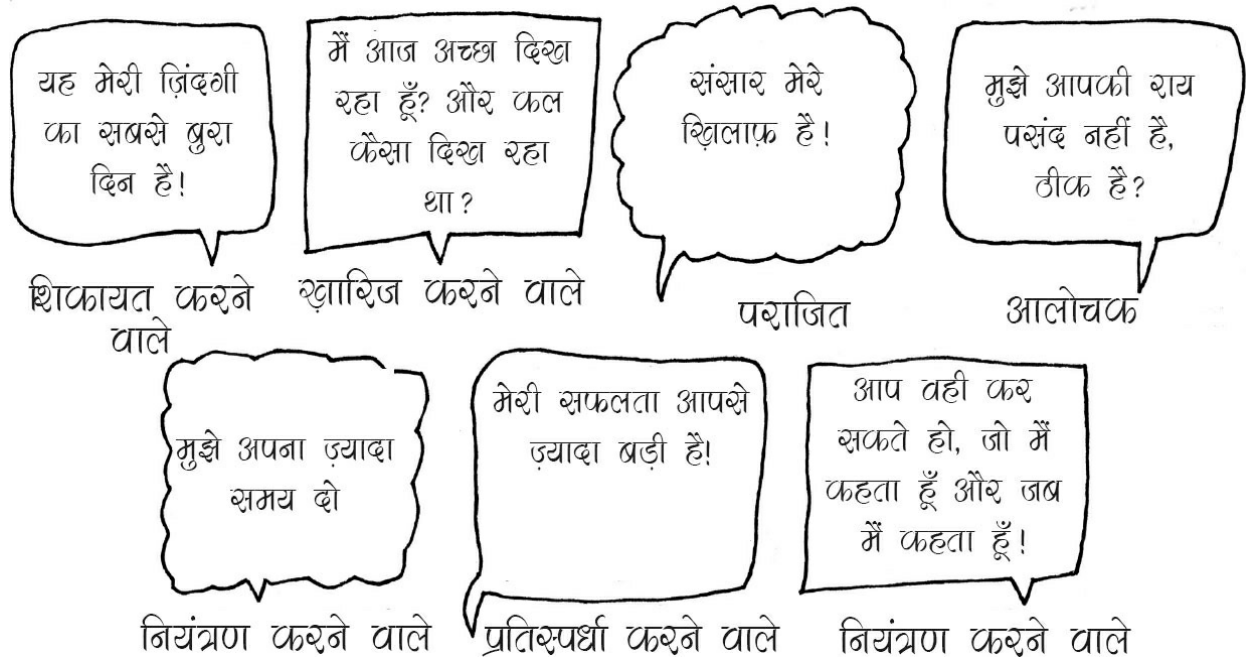 यह मेरी ज़िंदगी
का सबसे बुरा
दिन है!
शिकायत करने
वाले
मैं आज अच्छा दिख
रहा हूँ? और कल
कैसा दिख रहा
था?
ख़ारिज करने वाले
संसार मेरे
ख़िलाफ़ है!
पराजित
मुझे आपकी राय
पसंद नहीं है,
ठीक है?
आलोचक
मुझे अपना ज़्यादा
समय दो
नियंत्रण करने वाले
मेरी सफलता आपसे
ज़्यादा बड़ी है!
प्रतिस्पर्धा करने वाले
आप वही कर
सकते हो, जो मैं
कहता हूँ और जब
मैं कहता हूँ!
नियंत्रण करने वाले